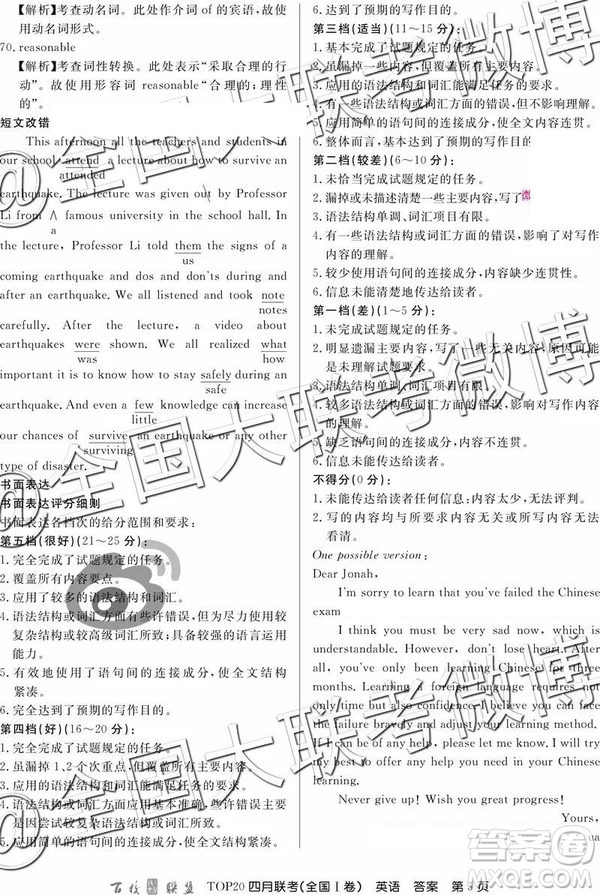 【解析】考查动名词。此处作介词 of 的宾语,故使
用动名词形式。
70. reasonable
【解析】考查词性转换。此处表示“采取合理的行
动”。故使用形容词 reasonable“合理的;理性
的”。
短文改错
This afternoon all the teachers and students in
our school attend a lecture about how to survive an
attended
earthquake. The lecture was given out by Professor
Li from ∧ famous university in the school hall. In
a
the lecture, Professor Li told them the signs of a
us
coming earthquake and dos and don'ts during and
after an earthquake. We all listened and took note
notes
carefully. After the lecture, a video about
earthquakes were shown. We all realized what
was how
important it is to know how to stay safely during an
safe
earthquake. And even a few knowledge can increase
little
our chances of survive an earthquake or any other
surviving
type of disaster.
书面表达
书面表达评分细则
书面表达各档次的给分范围和要求:
第五档(很好)(21~25 分):
1. 完全完成了试题规定的任务。
2. 覆盖所有内容要点。
3. 应用了较多的语法结构和词汇。
4. 语法结构或词汇方面有些许错误,但为尽力使用较
复杂结构或较高级词汇所致;具备较强的语言运用
能力。
5. 有效地使用了语句间的连接成分,使全文结构
紧凑。
6. 完全达到了预期的写作目的。
第四档(好)(16~20 分):
1. 完全完成了试题规定的任务。
2. 虽漏掉 1、2 个次重点,但覆盖所有主要内容。
3. 应用的语法结构和词汇能满足任务的要求。
4. 语法结构或词汇方面应用基本准确,些许错误主要
是因尝试较复杂语法结构或词汇所致。
5. 应用简单的语句间的连接成分,使全文结构紧凑。
6. 达到了预期的写作目的。
第三档(适当)(11~15 分):
1. 基本完成了试题规定的任务。
2. 虽漏掉一些内容,但覆盖所有主要内容。
3. 应用的语法结构和词汇能满足任务的要求。
4. 有一些语法结构或词汇方面的错误,但不影响理解。
5. 应用简单的语句间的连接成分,使全文内容连贯。
6. 整体而言,基本达到了预期的写作目的
第二档(较差)(6~10 分):
1. 未恰当完成试题规定的任务。
2. 漏掉或未描述清楚一些主要内容,写了
3. 语法结构单调、词汇项目有限。
4. 有一些语法结构或词汇方面的错误,影响了对写作
内容的理解。
5. 较少使用语句间的连接成分,内容缺少连贯性。
6. 信息未能清楚地传达给读者。
第一档(差)(1~5 分):
1. 未完成试题规定的任务。
2. 明显遗漏主要内容,写了一些无关内容,原因可能
是未理解试题要求。
3. 语法结构单调、词汇项目有限。
4. 较多语法结构或词汇方面的错误,影响对写作内容
的理解。
5. 缺乏语句间的连接成分,内容不连贯。
6. 信息未能传达给读者。
不得分(0 分):
1. 未能传达给读者任何信息:内容太少,无法评判。
2. 写的内容均与所要求内容无关或所写内容无法
看清。
One possible version:
Dear Jonah,
I'm sorry to learn that you've failed the Chinese
exam
I think you must be very sad now, which is
understandable. However, don't lose heart. After
all, you've only been learning Chinese for three
months. Learning a foreign language requires not
only time but also confidence. I believe you can face
the failure bravely and adjust your learning method.
If I can be of any help, please let me know. I will try
my best to offer any help you need in your Chinese
learning.
Never give up! Wish you great progress!
Yours,
百校联盟 TOP20 四月联考(全国Ⅰ卷) 英语 答案 第 页
@全国大联考微博
@全国大联考微博
@全国大联考微博